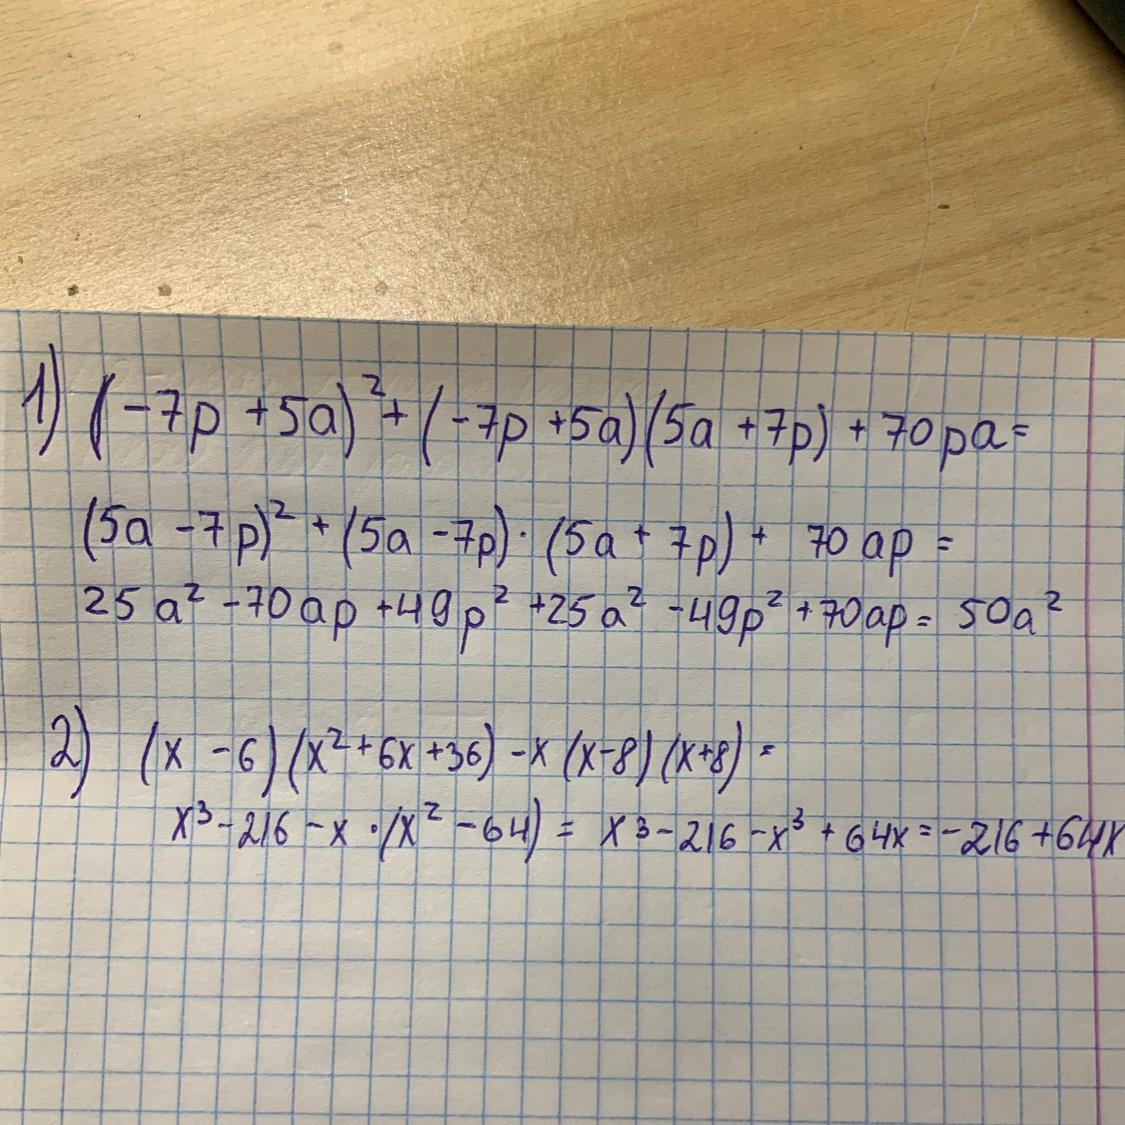 1) (-7p +5a)² + (-7p +5a)(5a +7p) + 70pa =
(5a -7p)² + (5a -7p) · (5a + 7p) + 70 ap =
25a² -70ap +49p² +25a² -49p² +70ap = 50a²
2) (x -6)(x²+6x+36) -x (x-8) (x+8) =
x³-216 -x · (x² -64) = x³-216 -x³ + 64x = -216 +64x